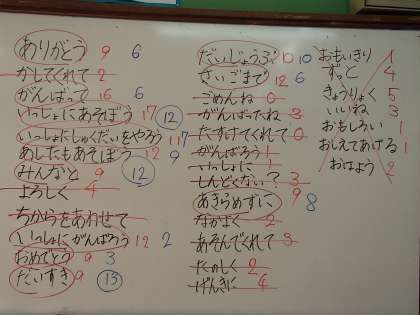 ありがとう 9 6
かしてくれて 2
がんばって 16 6
いっしょにあそぼう 17 12
いっしょにしゅくだいをやろう 117
あしたもあそぼう 12 9
みんなと 9 12
よろしく 4
ちからをあわせて
いっしょにがんばろう 12 2
おめでとう 9 3
だいすき 9 13
だいじょうぶ 10 10
さいごまで 12 6
ごめんね 0
がんばったね 3
たすけてくれて 0
がんばろう 1
いっしょに
しんどくない? 3
あきらめずに 9 8
なかよく 2
あそんでくれて 3
たのしく 2
げんきに 4
おもいきり 1
ずっと 4
きょうりょく 5
いいね 3
おもしろい 1
おしえてあげる 1
おはよう 2